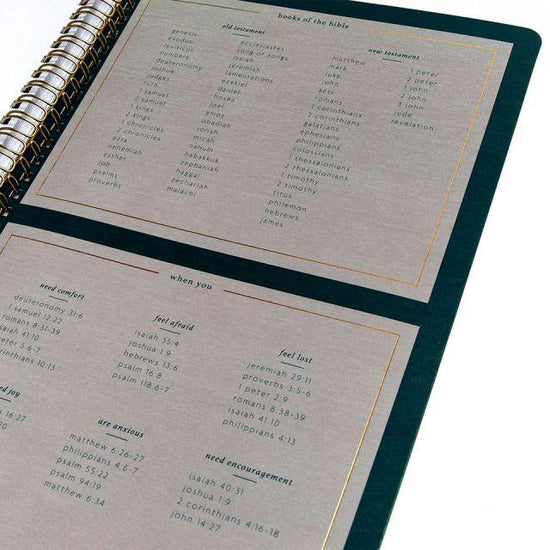 books of the bible
old testament
genesis
exodus
leviticus
numbers
deuteronomy
joshua
judges
ruth
1 samuel
2 samuel
1 kings
2 kings
1 chronicles
2 chronicles
ezra
nehemiah
esther
job
psalms
proverbs
ecclesiastes
song of songs
isaiah
jeremiah
lamentations
ezekiel
daniel
hosea
joel
amos
obadiah
jonah
micah
nahum
habakkuk
zephaniah
haggai
zechariah
malachi
new testament
matthew
mark
luke
john
acts
romans
1 corinthians
2 corinthians
galatians
ephesians
philippians
colossians
1 thessalonians
2 thessalonians
1 timothy
2 timothy
titus
philemon
hebrews
james
1 peter
2 peter
1 john
2 john
3 john
jude
revelation
when you
need comfort
deuteronomy 31:6
1 samuel 12:22
romans 8:31-39
isaiah 41:10
peter 5:6-7
corinthians 10:13
feel afraid
isaiah 35:4
joshua 1:9
hebrews 13:6
psalm 16:8
psalm 118:6-7
feel lost
jeremiah 29:11
proverbs 3:5-6
1 peter 2:9
romans 8:38-39
isaiah 41:10
philippians 4:13
ed joy
16:27
are anxious
matthew 6:26-27
philippians 4:6-7
psalm 55:22
psalm 94:19
matthew 6:34
need encouragement
isaiah 40:31
joshua 1:9
2 corinthians 4:16-18
john 14:27